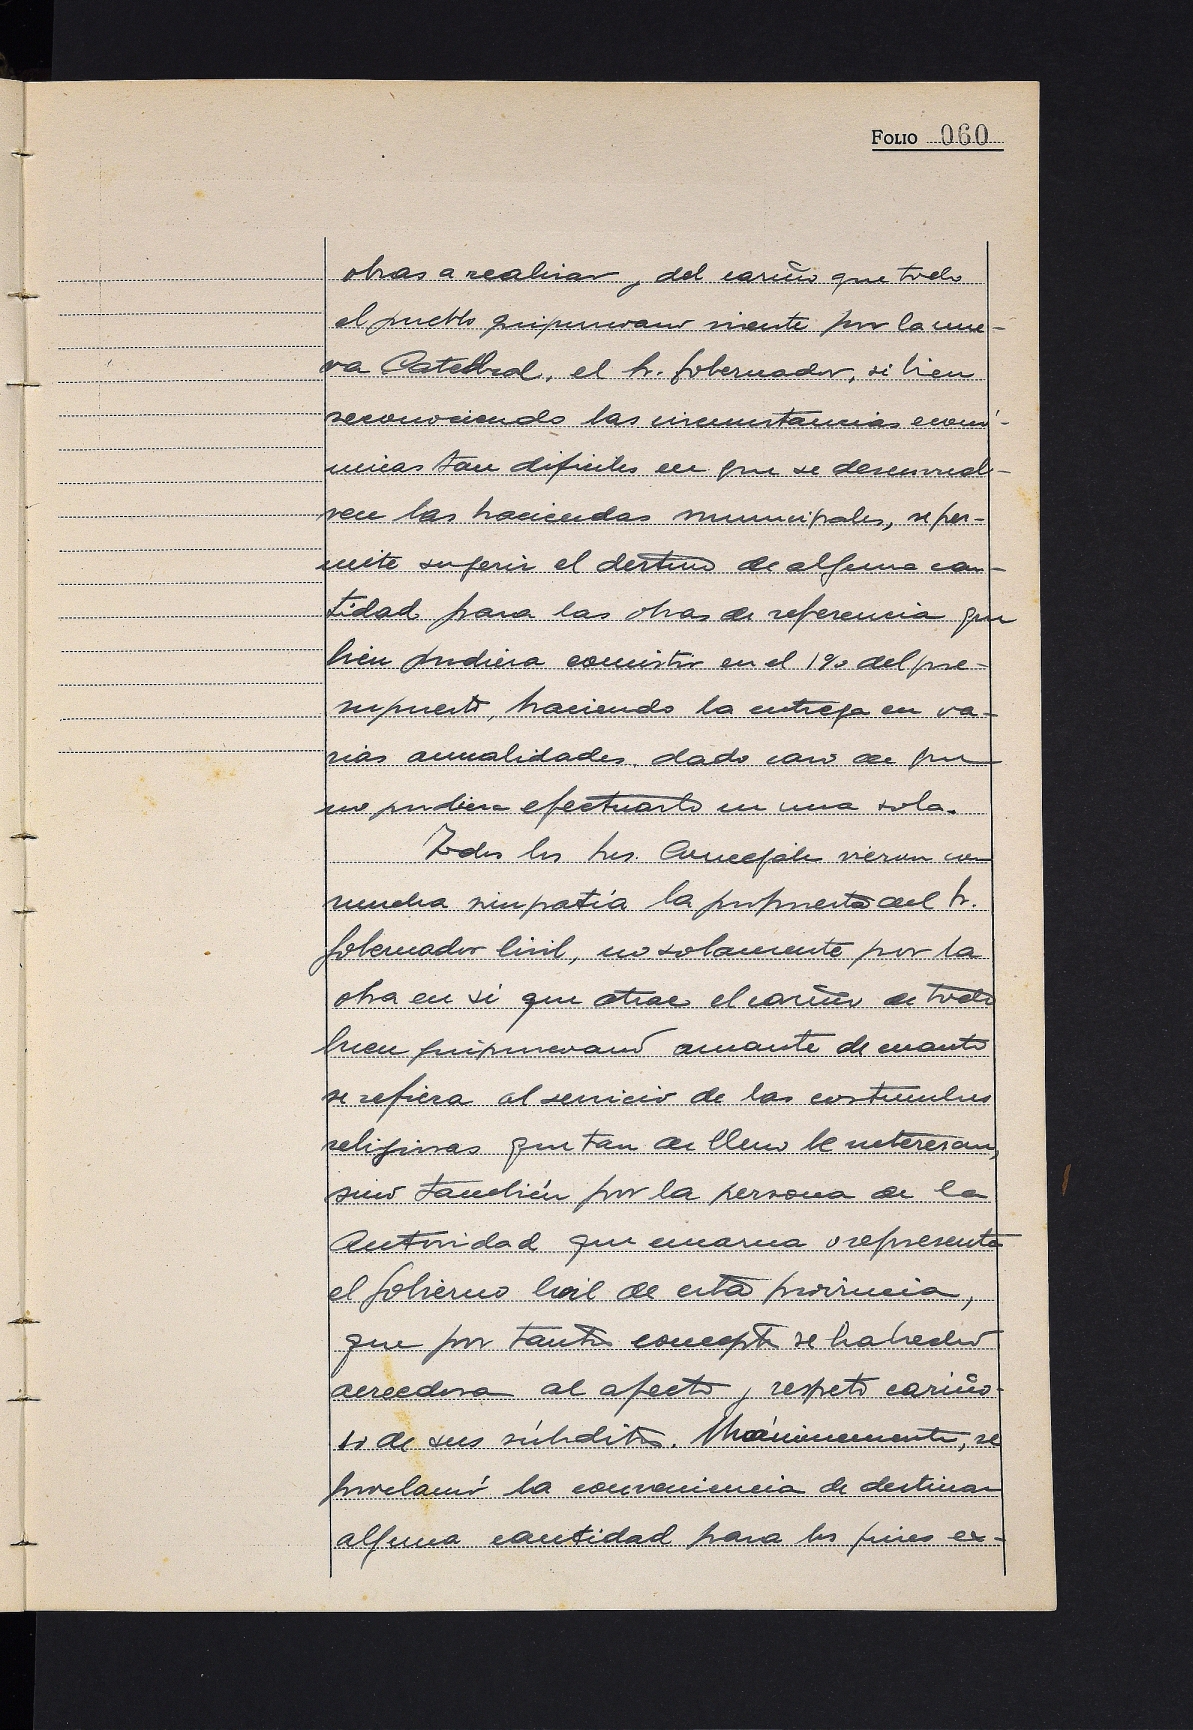 FOLIO 060
obras a realizar y del cariño que todo
el pueblo guipuzcoano siente por la nue-
va Catedral, el Sr. Gobernador, si bien
reconociendo las circunstancias econó-
micas tan dificiles en que se desenvuel-
ven las haciendas municipales, se per-
mite sugerir el destino de alguna can-
tidad para las obras de referencia que
bien pudiera consistir en el 1% del pre-
supuesto, haciendo la entrega en va-
rias anualidades, dado caso de que
no pudiera efectuarlo en una sola.
Todos los Sres. Concejales vieron con
mucha simpatía la propuesta del Sr.
Gobernador Civil, no solamente por la
obra en sí que atrae el cariño de todo
buen guipuzcoano amante de cuanto
se refiera al servicio de las costumbres
religiosas que tan de lleno le interesan,
sino también por la persona de la
Autoridad que encarna o representa
el Gobierno Civil de esta provincia,
que por tantos conceptos se ha hecho
acreedora al afecto y respeto cariño-
so de sus súbditos. Unánimemente, se
proclamó la conveniencia de destinar
alguna cantidad para los fines ex-